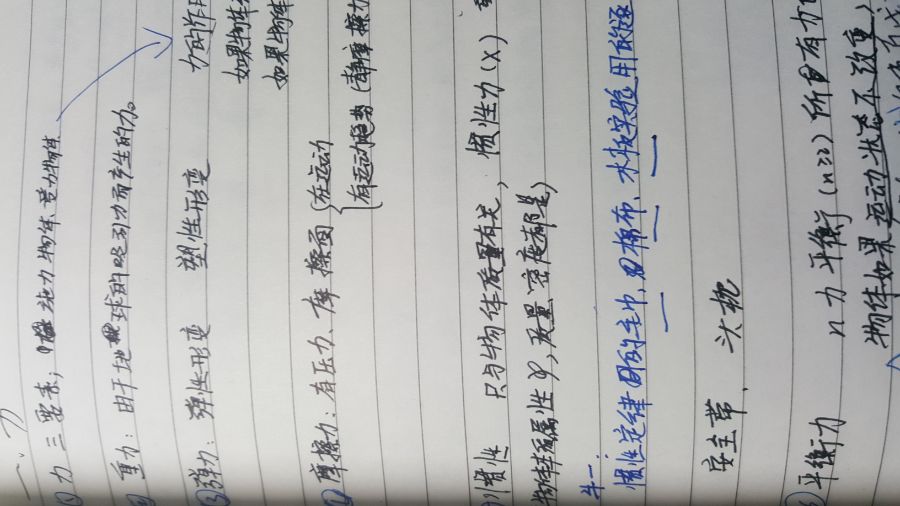 一、力
① 力 三要素; 施力物体、受力物体
② 重力: 由于地球的吸引力而产生的力。
力的作用
③ 弹力: 弹性形变 塑性形变
如果物体
如果物体
④ 摩擦力: 有压力、摩擦面 {在运动
有运动趋势 (静摩擦力
惯性 只与物体质量有关, 惯性力(×)
物体有属性 4, 质量密度都是)
牛一.
惯性定律 用的毛巾、棉布、木板实验用的
安全带、头枕
平衡力 n力平衡 (n≥2) 所有力
物体如果运动状态不改变,